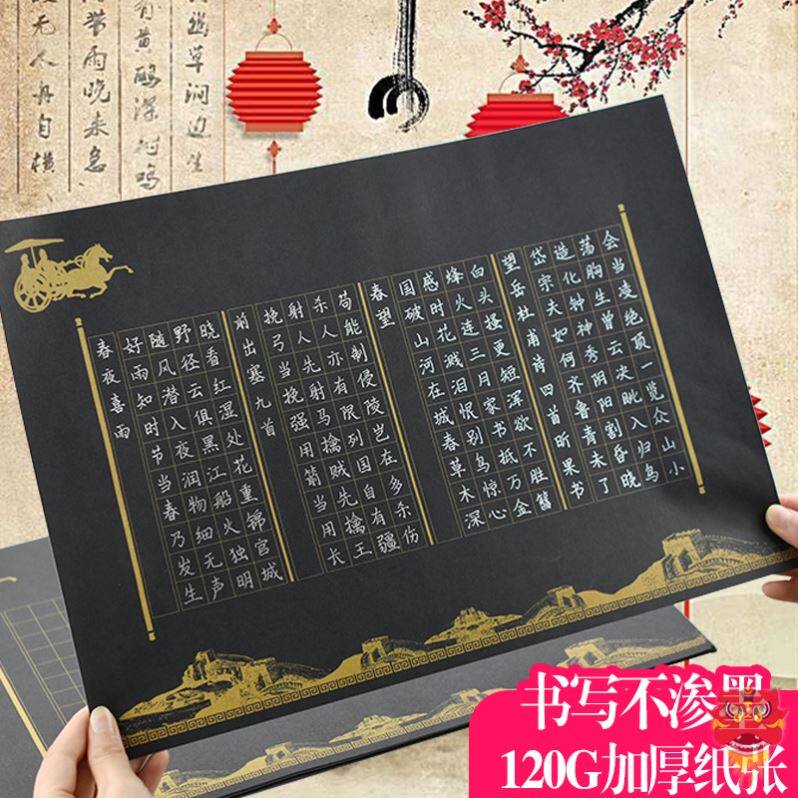 幽草涧边生
有黄鹂深树鸣
带雨晚来急
无人舟自横
春夜喜雨
好雨知时节当春乃发生
随风潜入夜润物细无声
野径云俱黑江船火独明
晓看红湿处花重锦官城
前出塞九首
挽弓当挽强用箭当用长
射人先射马擒贼先擒王
杀人亦有限列国自有疆
苟能制侵陵岂在多杀伤
春望
国破山河在城春草木深
感时花溅泪恨别鸟惊心
烽火连三月家书抵万金
白头搔更短浑欲不胜簪
望岳杜甫诗四首昕果书
岱宗夫如何齐鲁青未了
造化钟神秀阴阳割昏晓
荡胸生曾云决眦入归鸟
会当凌绝顶一览众山小
书写不渗墨
120G加厚纸张